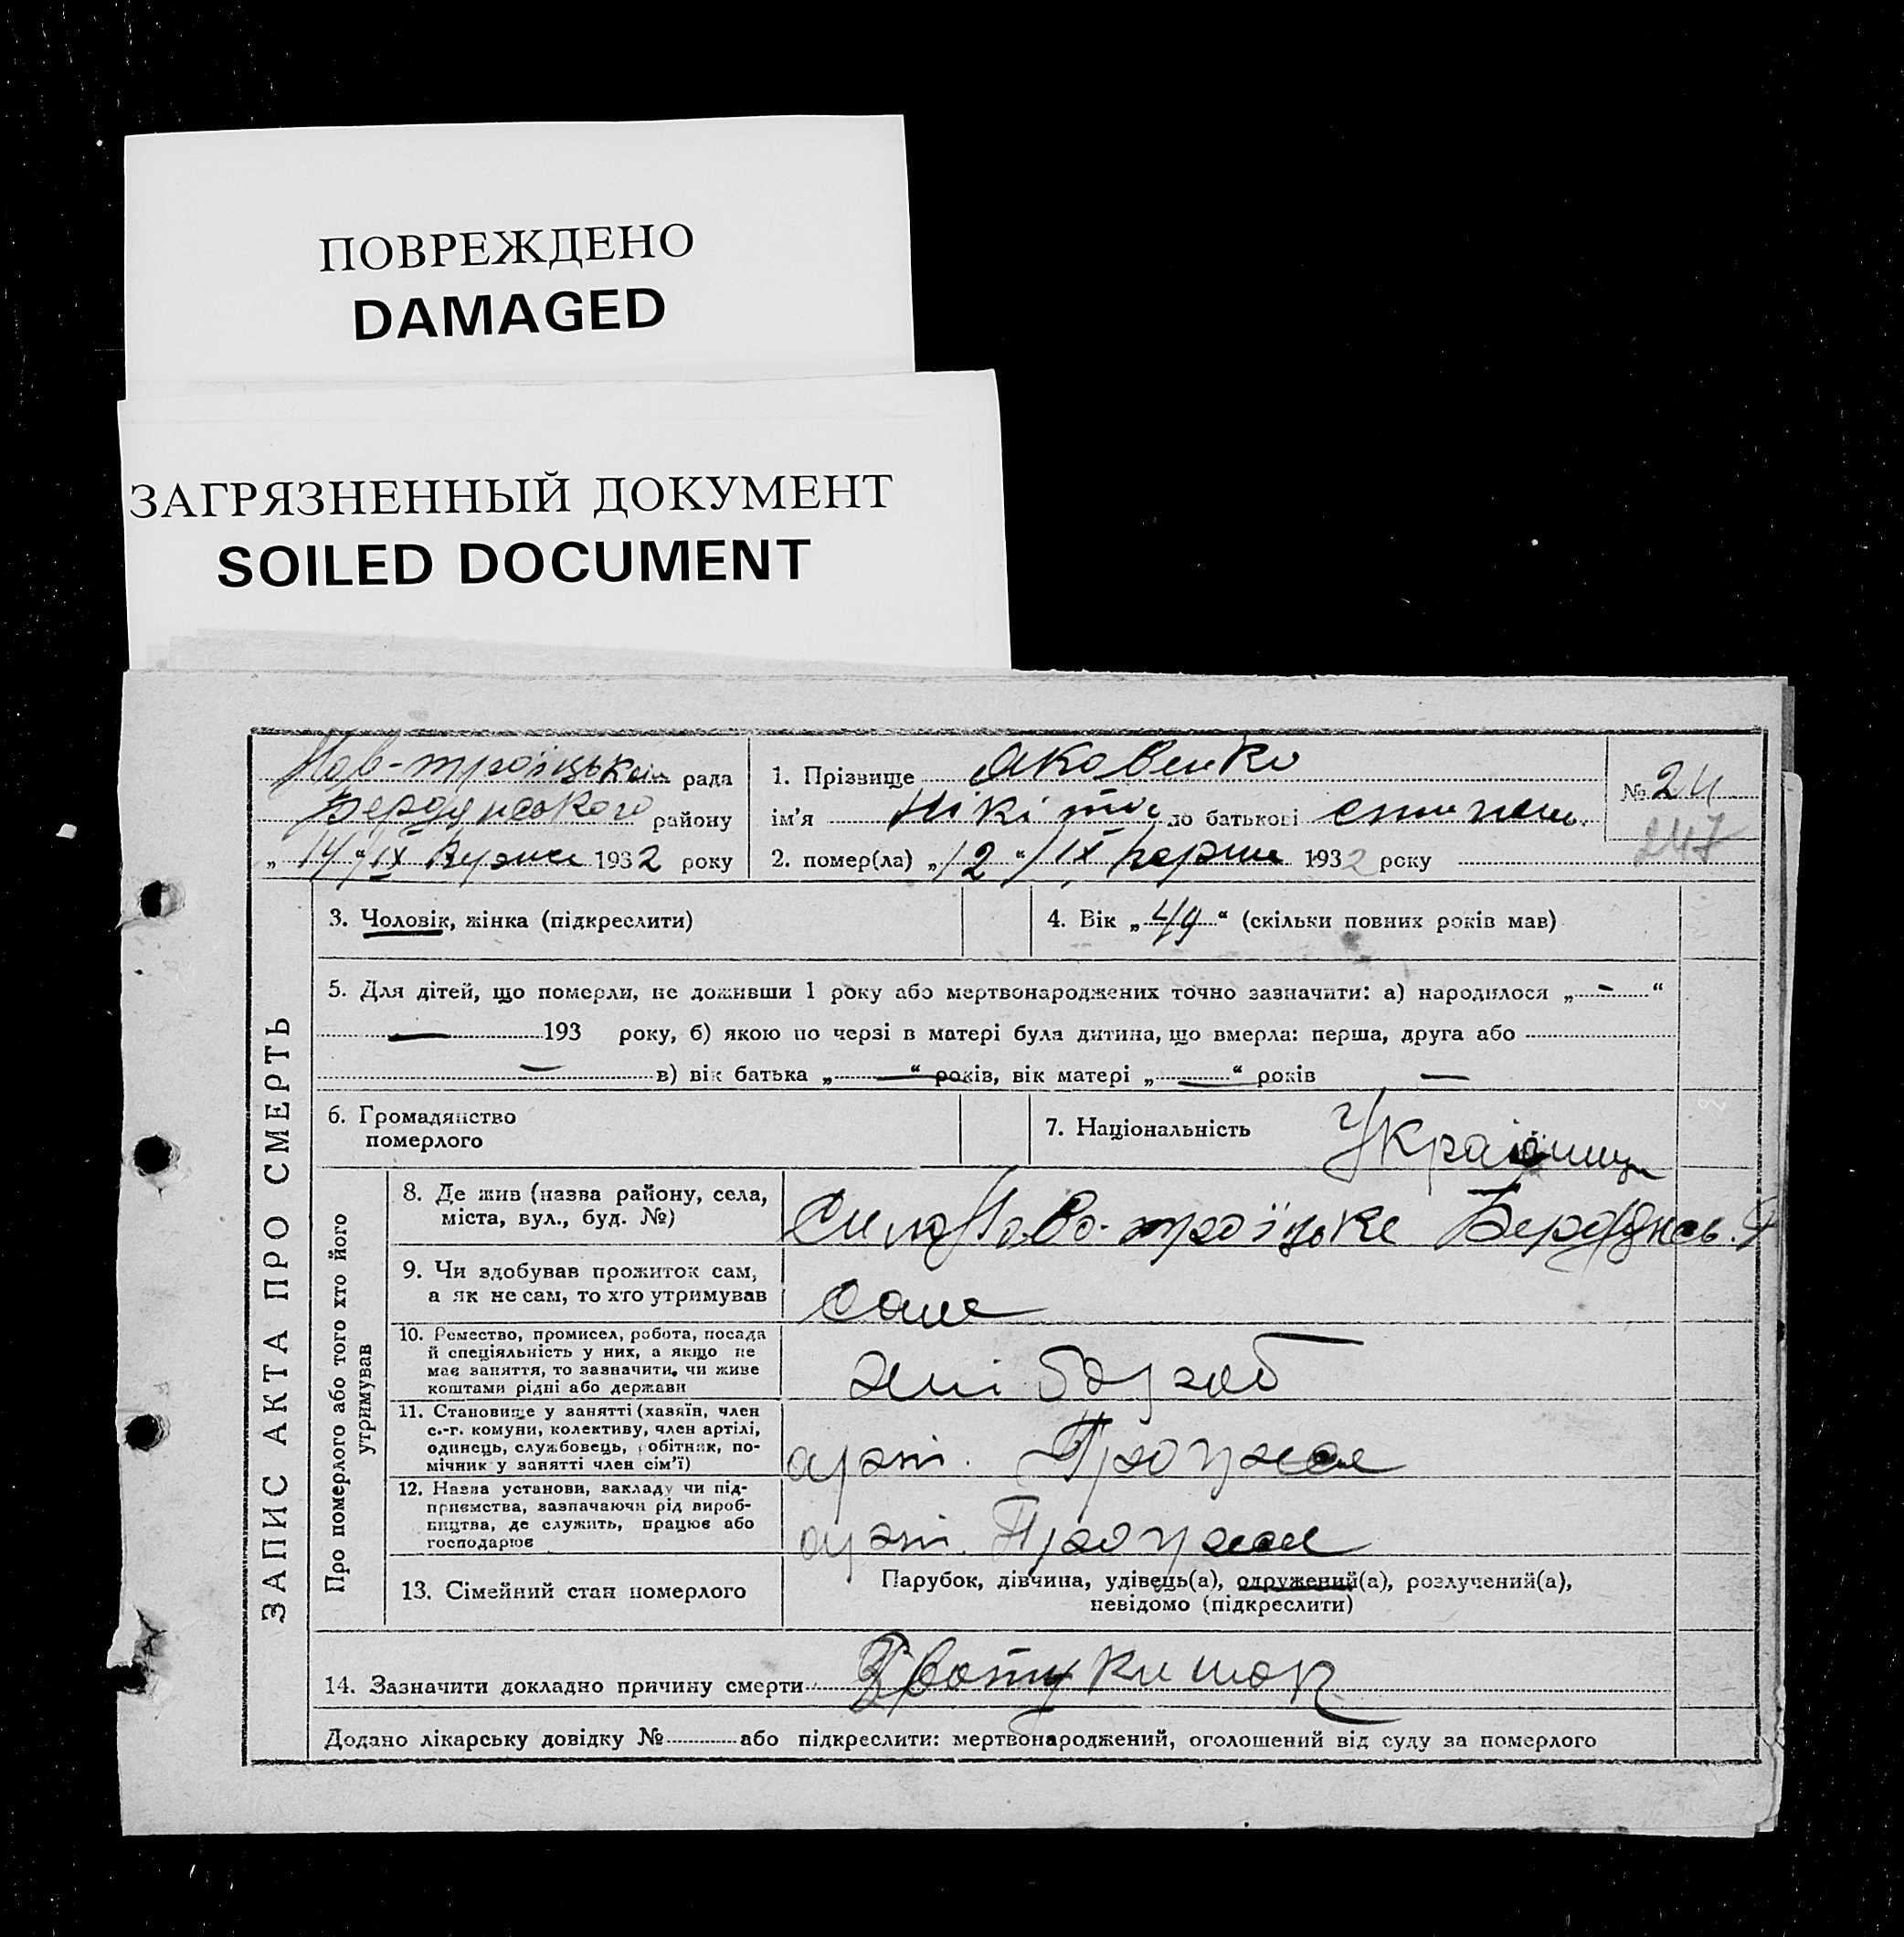 ПОВРЕЖДЕНО
DAMAGED
ЗАГРЯЗНЕННЫЙ ДОКУМЕНТ
SOILED DOCUMENT
Нов-троїцької рада
Бердянського району
„ 14 “ IX 1932 року
1. Прізвище Яковенко
ім'я Нікіта по батькові
2. помер(ла) „ 12 “ IX 1932 року
№ 24
247
ЗАПИС АКТА ПРО СМЕРТЬ
3. Чоловік, жінка (підкреслити)
4. Вік „ 49 “ (скільки повних років мав)
5. Для дітей, що померли, не доживши 1 року або мертвонароджених точно зазначити: а) народилося „ – “
— 193 року, б) якою по черзі в матері була дитина, що вмерла: перша, друга або
— в) вік батька „ — “ років, вік матері „ — “ років —
6. Громадянство
померлого
7. Національність Українець
Про померлого або того хто його
утримував
8. Де жив (назва району, села,
міста, вул., буд. №)
Село Ново-троїцьке Бердянсь. Р
9. Чи здобував прожиток сам,
а як не сам, то хто утримував
сам
10. Ремество, промисел, робота, посада
й спеціяльність у них, а якщо не
має заняття, то зазначити, чи живе
коштами рідні або держави
хлібороб
11. Становище у занятті (хазяїн, член
с.-г. комуни, колективу, член артілі,
одинець, службовець, робітник, по-
мічник у занятті член сім'ї)
арт.
12. Назва установи, закладу чи під-
приємства, зазначаючи рід вироб-
ництва, де служить, працює або
господарює
арт.
13. Сімейний стан померлого
Парубок, дівчина, удівець(а), одружений(а), розлучений(а),
невідомо (підкреслити)
14. Зазначити докладно причину смерти
Додано лікарську довідку № або підкреслити: мертвонароджений, оголошений від суду за померлого